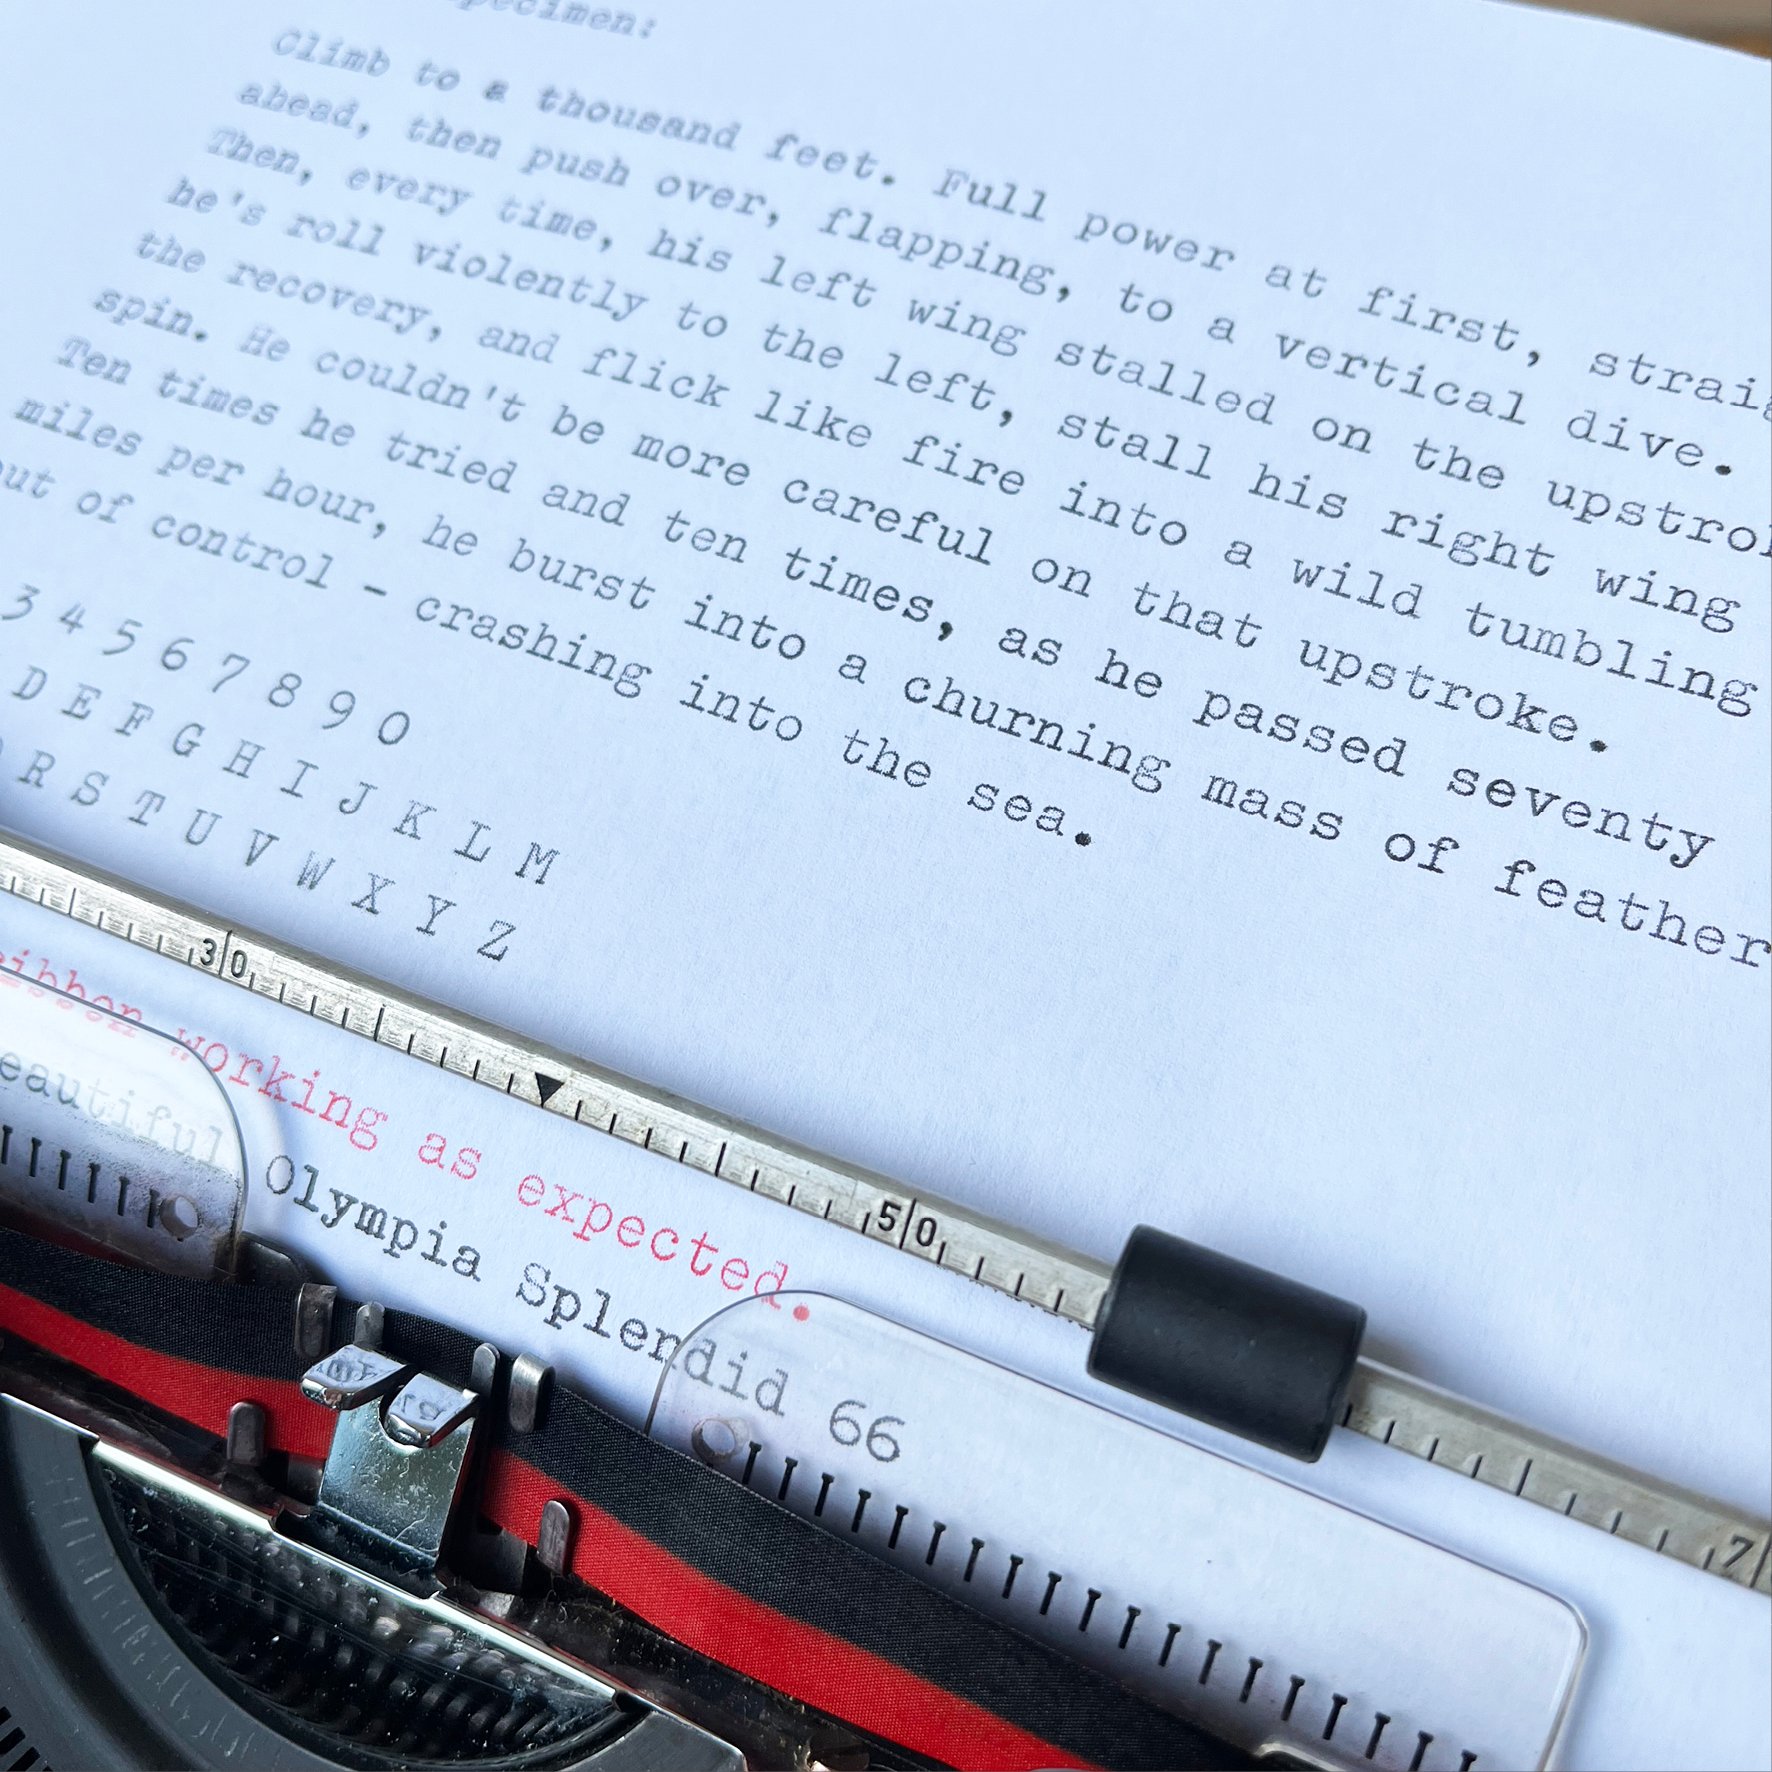 specimen:
Climb to a thousand feet. Full power at first, straig
ahead, then push over, flapping, to a vertical dive.
Then, every time, his left wing stalled on the upstrok
he's roll violently to the left, stall his right wing
the recovery, and flick like fire into a wild tumbling
spin. He couldn't be more careful on that upstroke.
Ten times he tried and ten times, as he passed seventy
miles per hour, he burst into a churning mass of feather
out of control - crashing into the sea.
3 4 5 6 7 8 9 0
D E F G H I J K L M
R S T U V W X Y Z
30
50
7
ribbon working as expected.
eautiful Olympia Splendid 66